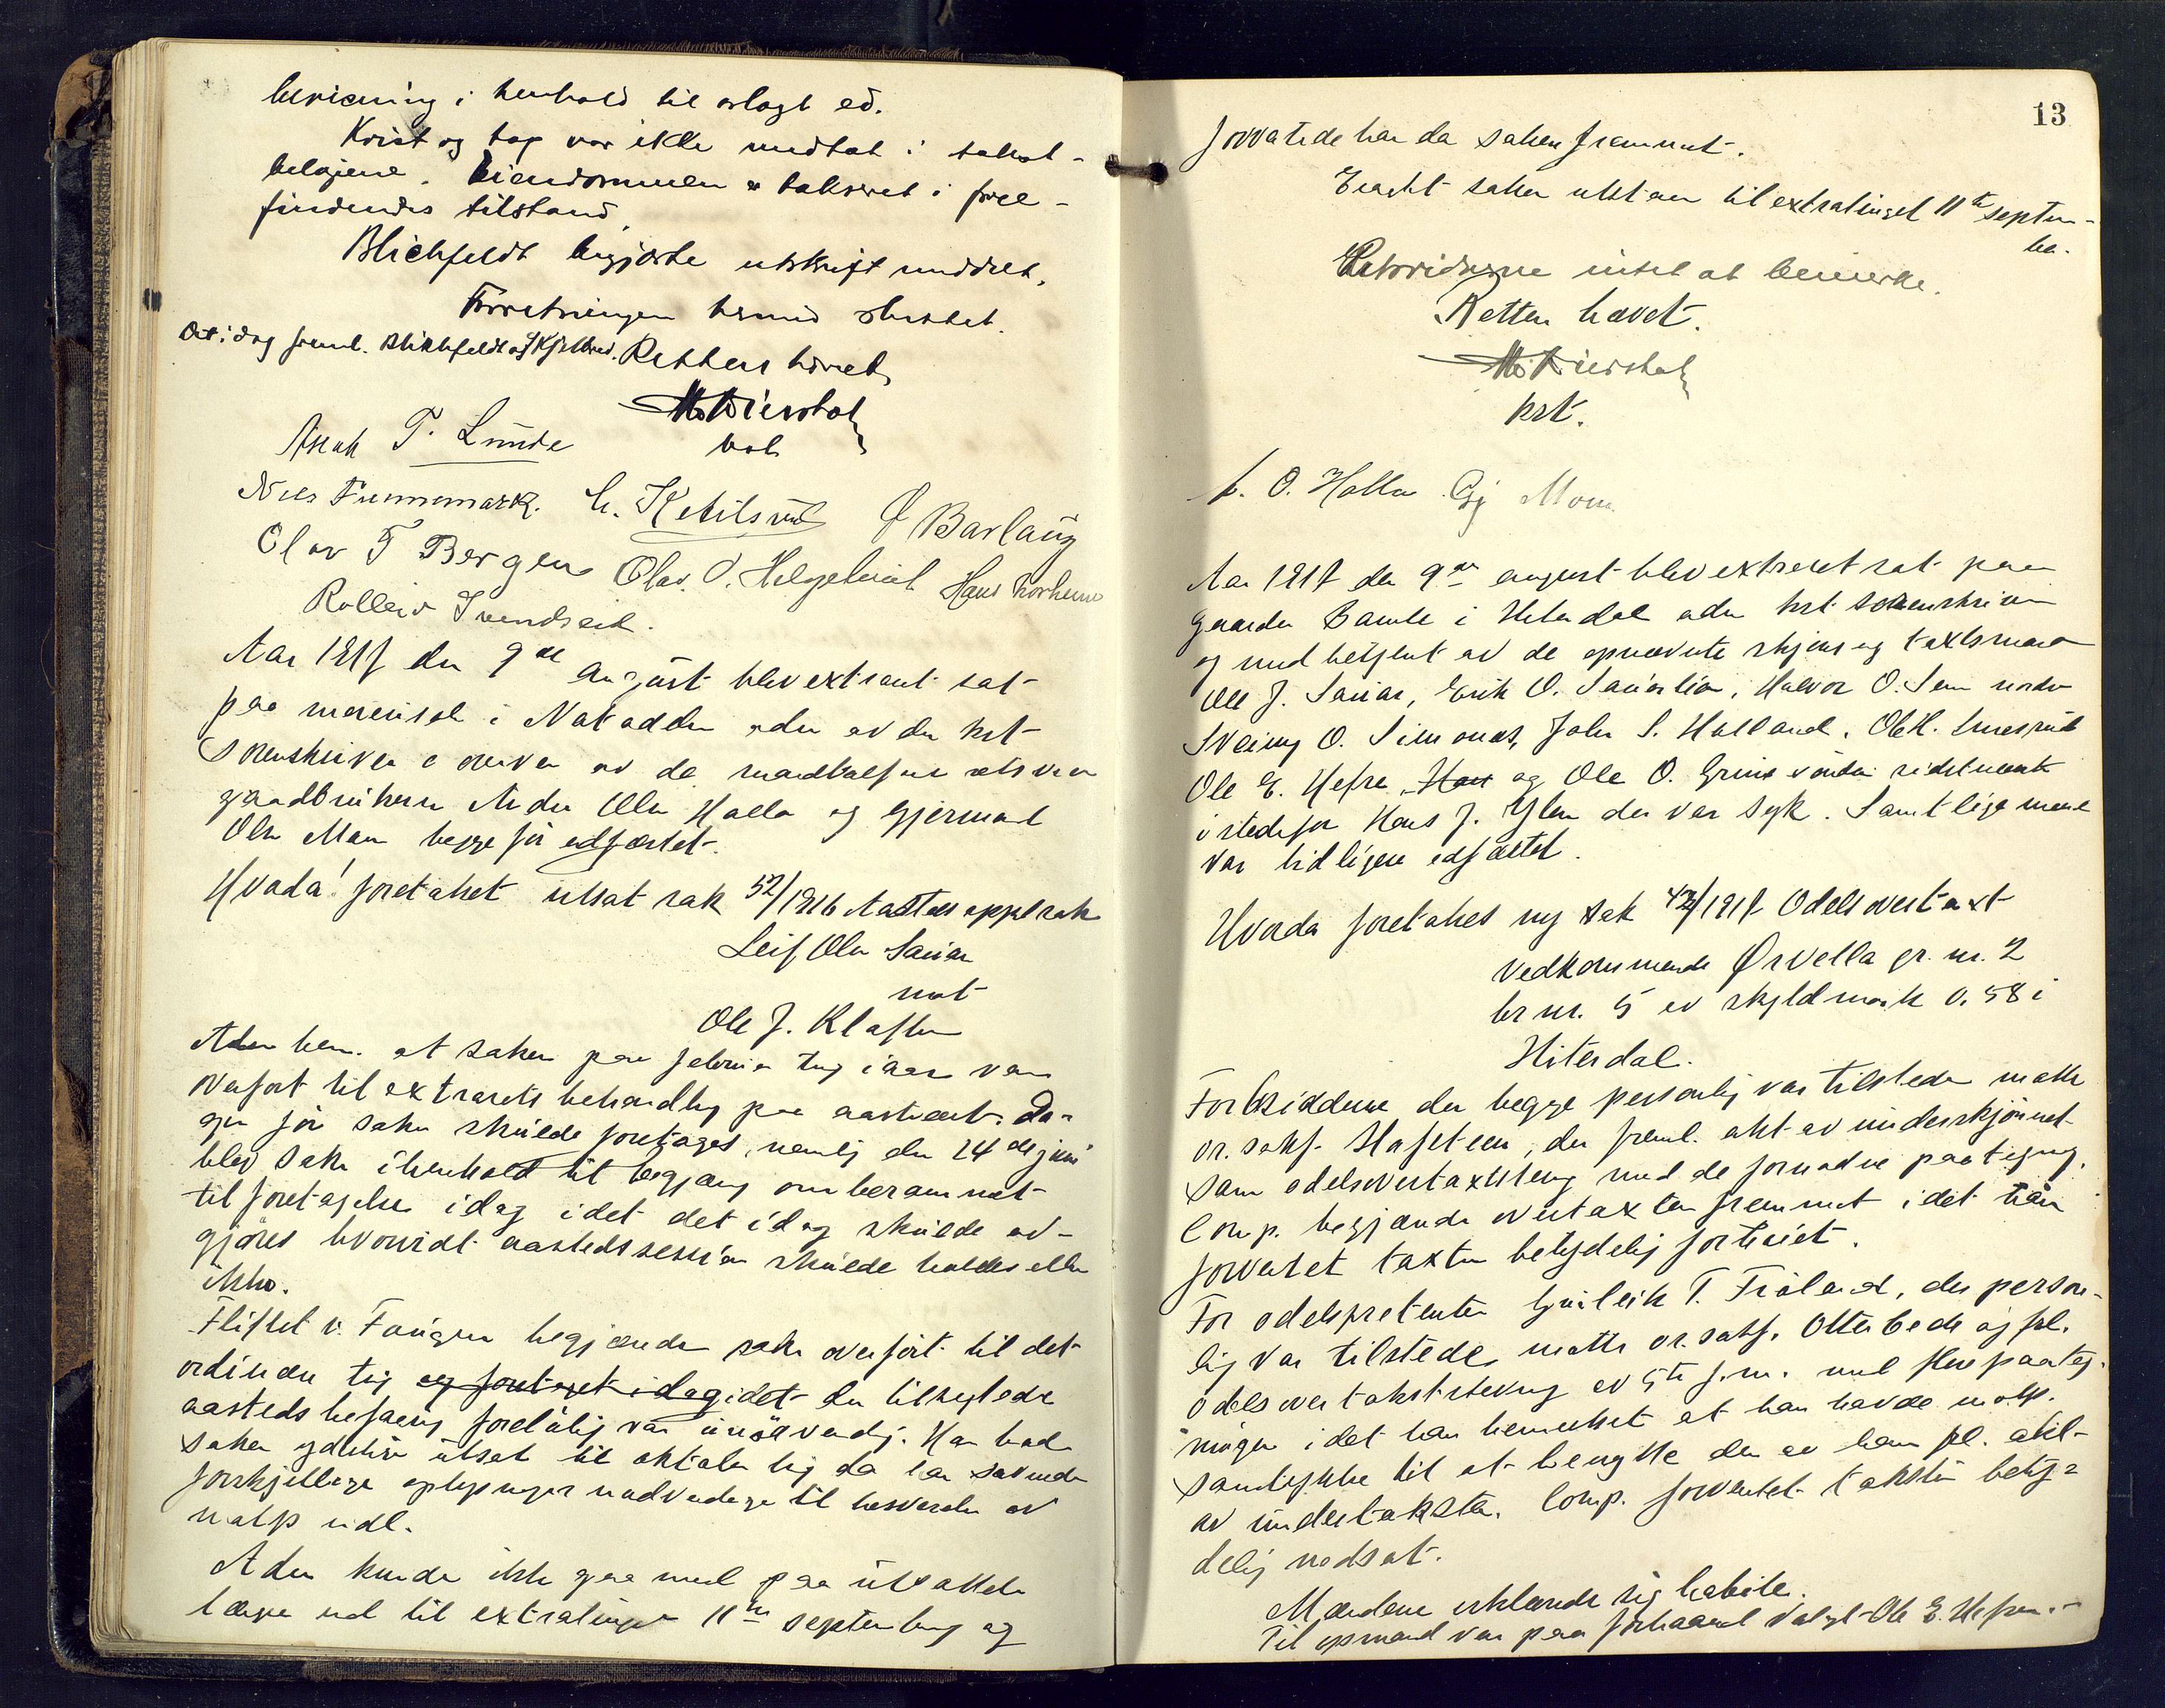 bevisning i henhold til avlagt ed.
Kvist og tap var ikke medtat i takst-
beløpene. Eiendommen er taksert i fore-
findendes tilstand.
Blichfeldt begjærte utskrift meddelt.
Forretningen hermed sluttet.
Att. idag freml. Blichfeldt og
Retten hævet.
kst
Aslak T. Lunde
Nils Funnemark. H. Ketilsrud Barlaug
Olav T Bergen Olav O. Helgeland Hans
Rolleiv Svendseid.
Aar 1917 den 9de august blev extraret sat
paa i Notodden adm av den kst
Sorenskriver av de mandtalførte retsvidner
gaardbrukerne Anders Olsen Halla og Gjermund
Olsen Moen begge før edfæstet.
Hvorda! foretokes utsat sak 52/1916 Aasteds appelsak
Leif Olsen Sauar
mot
Ole J. Kl
Adm bem. at saken paa februar ting i aar var
overført til extrarets behandling paa aastedet. Da-
gen før saken skulde foretages, nemlig den 24de juni
blev saken i henhold til begjæring omberammet
til foretagelse idag idet det idag skulde av-
gjøres hvorvidt aastedssession skulde holdes eller
ikke.
Fliflet v. begjærede saken overført til det
ordinære ting og foretaget idag idet den tilsigtede
aasteds befaring foreløbig var unødvendig. Han bad
saken ydeliger utsat til oktober ting da han savnede
forskjellige oplysninger nødvendige til besvarelse av
motp indl.
Adm kunde ikke gaa med paa utsættelse
længer end til extratinget 11te september og
13
forvatede han da saken fremmet.
Eragtet saken utstaar til extratinget 11te septem-
ber.
Retsvidnerne intet at bemerke.
Retten hævet.
kst.
A. O. Halla Gj Moen
Aar 1917 den 9de august blev extraret sat paa
gaarden Bamle i Hiterdal adm kst sorenskriver
og med betjent av de opnævnte skjøns og taxtsmænd
Ole J. Sauar, Erik O. Sauarlia, Halvor O. Sem nordre
Sveinung O. Simones, John S. Halland, Ole H.
Ole E. Hefre, Han og Ole O. Grene sidstnævnte
istedetfor Hans J. Yli der var syk. Samtlige mænd
var tidligere edfæstet.
Hvorda foretokes ny sak 42/1917 Odelsovertaxt
vedkommende Ørvella gr. nr. 2
br nr. 5 av skyldmark 0.58 i
Hiterdal.
For besidderne der begge personlig var tilstede møtte
or. sakf. Hafsteen, der freml. akt av underskjønnet
samt odelsovertaxtstevning med de fornødne paategng.
Comp. begjærede overtaxten fremmet idet han
forventet taxten betydelig forhøiet.
For odelspretenten Gunleik T. Frøland, der person-
lig var tilstede, møtte or. sakf. Otterbech og frl.
odelsovertakststevning av 5te f.m. med flere paateg-
ninger idet han bemerket at han havde motp.
samtykke til at benytte den av ham frl. akt
av undertaksten. Comp. forventet taksten bety-
delig nedsat.
Mændene erklærede sig habile.
Til opmand var paa forhaand valgt Ole E. Hefre.